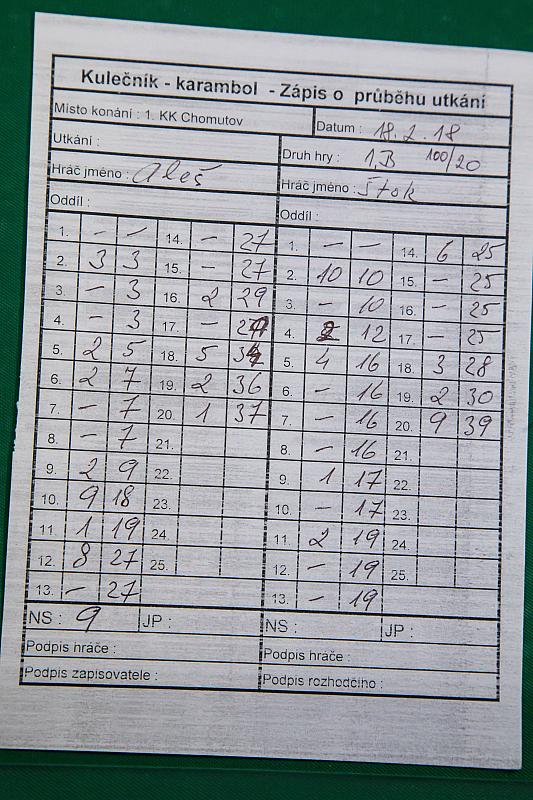 Kulečník - karambol - Zápis o průběhu utkání
Místo konání : 1. KK Chomutov Datum : 18. 2. 18
Utkání : Druh hry : 1.B 100/20
Hráč jméno : Aleš Hráč jméno : Štok
Oddíl : Oddíl :
1. – – 14. – 27 1. – – 14. 6 25
2. 3 3 15. – 27 2. 10 10 15. – 25
3. – 3 16. 2 29 3. – 10 16. – 25
4. – 3 17. – 29 4. 2 12 17. – 25
5. 2 5 18. 5 34 5. 4 16 18. 3 28
6. 2 7 19. 2 36 6. – 16 19. 2 30
7. – 7 20. 1 37 7. – 16 20. 9 39
8. – 7 21. 8. – 16 21.
9. 2 9 22. 9. 1 17 22.
10. 9 18 23. 10. – 17 23.
11. 1 19 24. 11. 2 19 24.
12. 8 27 25. 12. – 19 25.
13. – 27 13. – 19
NS : 9 JP : NS : JP :
Podpis hráče : Podpis hráče :
Podpis zapisovatele : Podpis rozhodčího :